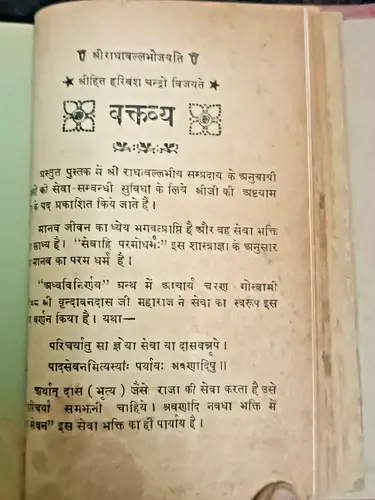 श्रीराधावल्लभोजयति
★ श्रीहित हरिवंश चन्द्रो विजयते ★
वक्तव्य
प्रस्तुत पुस्तक में श्री राधावल्लभीय सम्प्रदाय के अनुयायी
को सेवा-सम्वन्धी सुविधा के लिये श्रीजी की अष्टयाम
के पद प्रकाशित किये जाते हैं ।
मानव जीवन का ध्येय भगवत्प्राप्ति है और वह सेवा भक्ति
साध्य है । “सेवाहि परमोधर्मः” इस शास्त्राज्ञा के अनुसार
मानव का परम धर्म है ।
“अध्वविनिर्णय” ग्रन्थ में आचार्य चरण गोस्वामी
श्री वृन्दावनदास जी महाराज ने सेवा का स्वरूप इस
वर्णन किया है । यथा—
परिचर्यातु सा ज्ञेया सेवा या दासवन्नृपे ।
पादसेवनमित्यस्याः पर्यायः श्रवणादिषु ॥
अर्थात् दास ( भृत्य ) जैसे राजा की सेवा करता है उसे
समझनी चाहिये । श्रवणादि नवधा भक्ति में
सेवन” इस सेवा भक्ति का ही पर्याय है ।